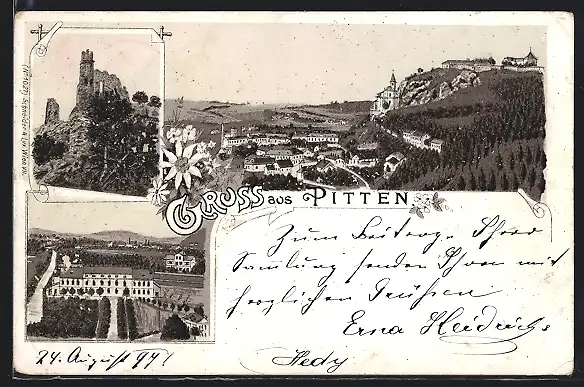 Gruss aus Pitten
Zum Beitrag Ihrer
Samlung senden Ihnen mit
herzlichen Grüßen
Erna Heidrich
Hedy
24. August 97